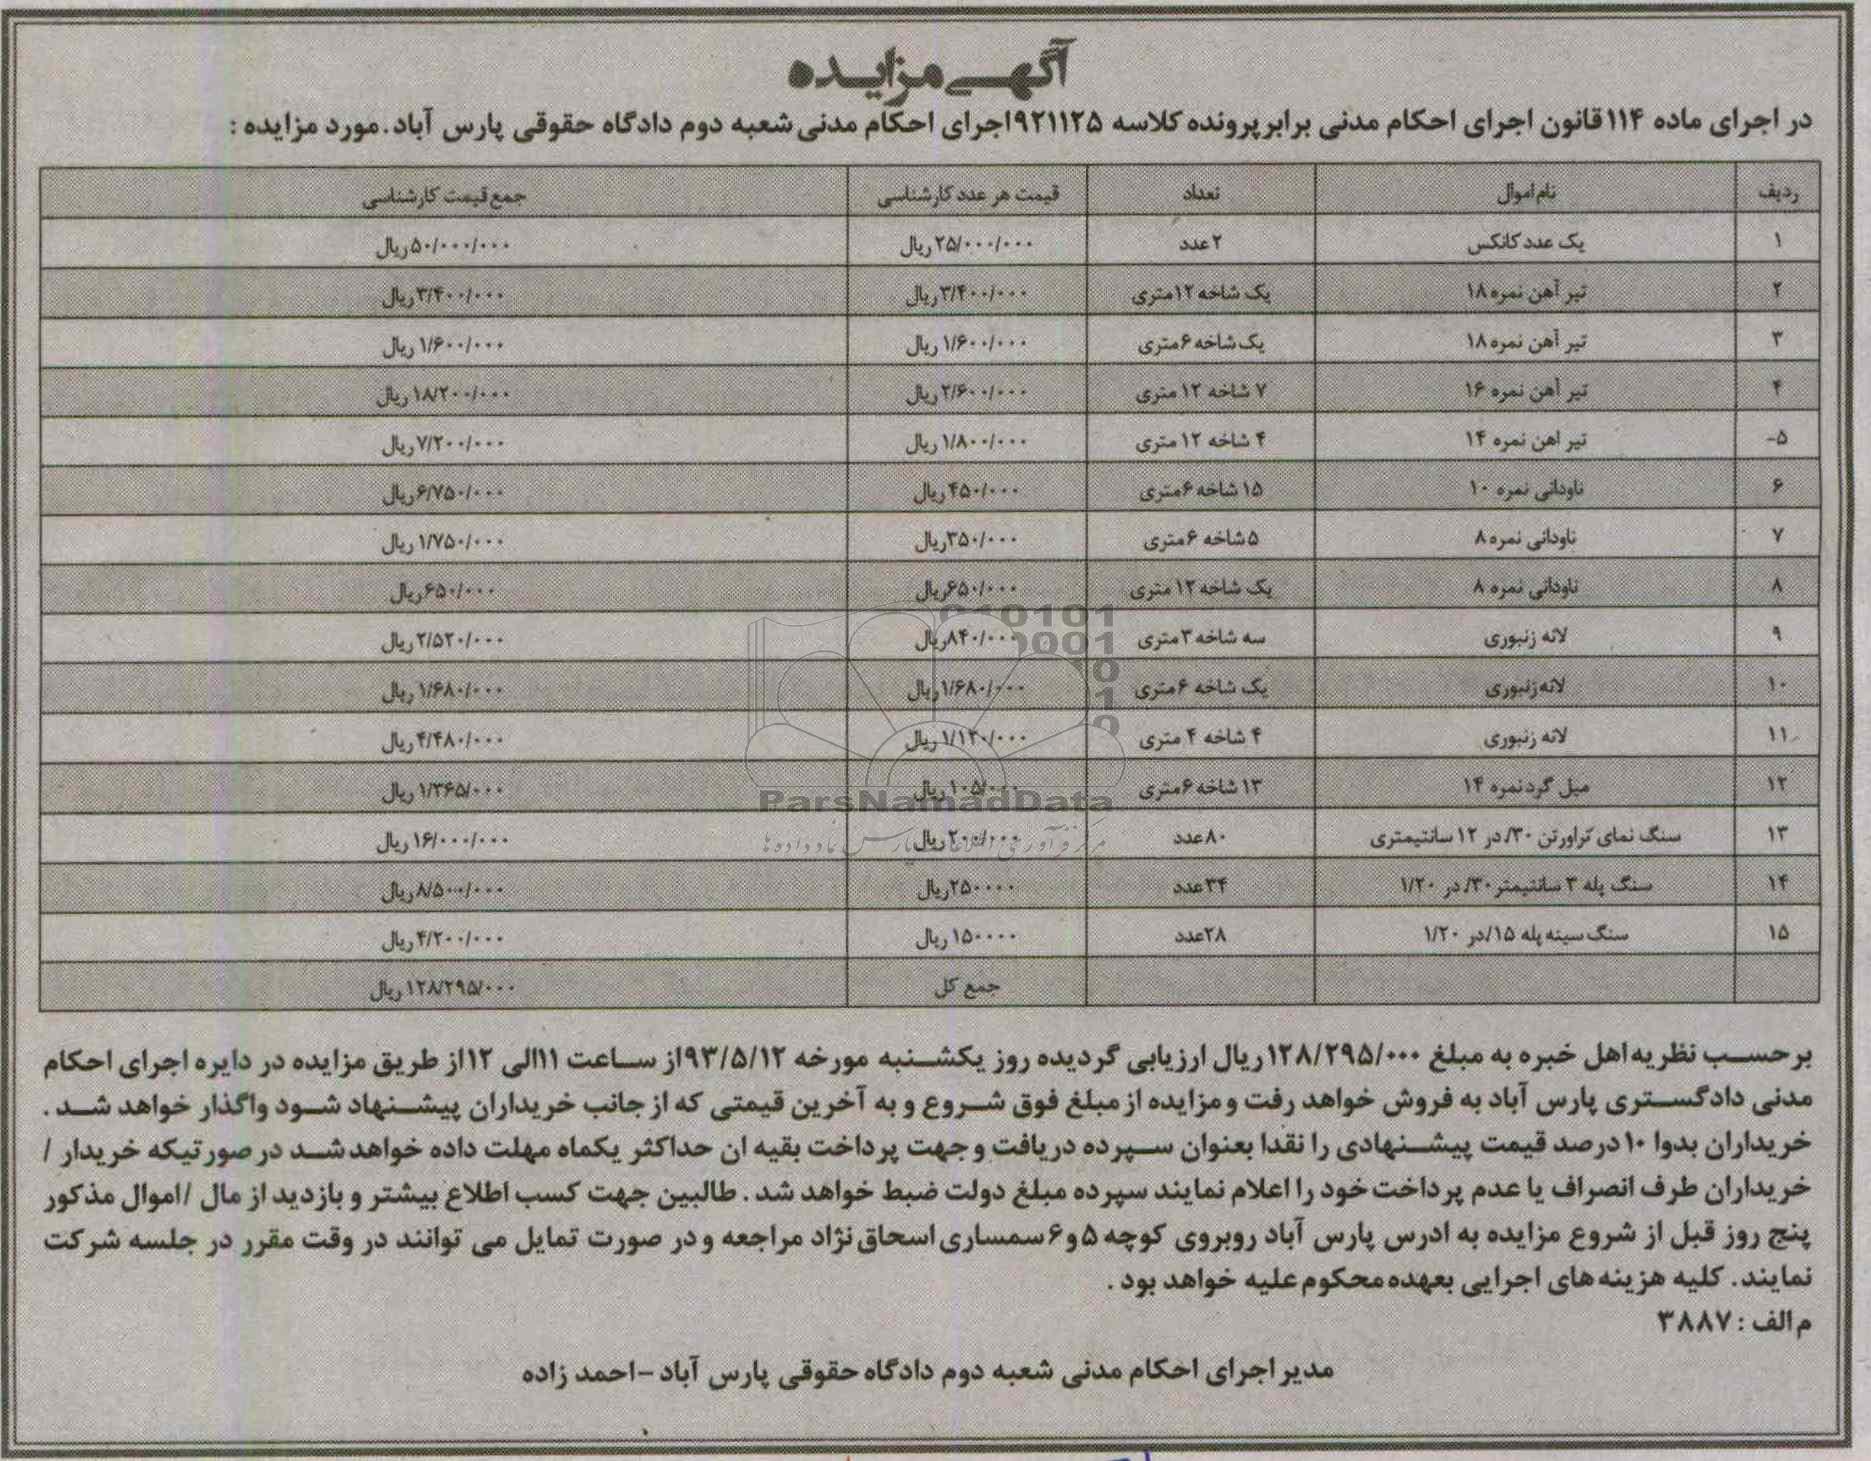 آگهی مزایده
در اجرای ماده ۱۱۴ قانون اجرای احکام مدنی برابر پرونده کلاسه ۹۲۱۱۲۵ اجرای احکام مدنی شعبه دوم دادگاه حقوقی پارس آباد. مورد مزایده :
ردیف نام اموال تعداد قیمت هر عدد کارشناسی جمع قیمت کارشناسی
۱ یک عدد کانکس ۲ عدد ۲۵/۰۰۰/۰۰۰ ریال ۵۰/۰۰۰/۰۰۰ ریال
۲ تیر آهن نمره ۱۸ یک شاخه ۱۲ متری ۳/۴۰۰/۰۰۰ ریال ۳/۴۰۰/۰۰۰ ریال
۳ تیر آهن نمره ۱۸ یک شاخه ۶ متری ۱/۶۰۰/۰۰۰ ریال ۱/۶۰۰/۰۰۰ ریال
۴ تیر آهن نمره ۱۶ ۷ شاخه ۱۲ متری ۲/۶۰۰/۰۰۰ ریال ۱۸/۲۰۰/۰۰۰ ریال
۵- تیر اهن نمره ۱۴ ۴ شاخه ۱۲ متری ۱/۸۰۰/۰۰۰ ریال ۷/۲۰۰/۰۰۰ ریال
۶ ناودانی نمره ۱۰ ۱۵ شاخه ۶ متری ۴۵۰/۰۰۰ ریال ۶/۷۵۰/۰۰۰ ریال
۷ ناودانی نمره ۸ ۵ شاخه ۶ متری ۳۵۰/۰۰۰ ریال ۱/۷۵۰/۰۰۰ ریال
۸ ناودانی نمره ۸ یک شاخه ۱۲ متری ۶۵۰/۰۰۰ ریال ۶۵۰/۰۰۰ ریال
۹ لانه زنبوری سه شاخه ۳ متری ۸۴۰/۰۰۰ ریال ۲/۵۲۰/۰۰۰ ریال
۱۰ لانه زنبوری یک شاخه ۶ متری ۱/۶۸۰/۰۰۰ ریال ۱/۶۸۰/۰۰۰ ریال
۱۱ لانه زنبوری ۴ شاخه ۴ متری ۱/۱۲۰/۰۰۰ ریال ۴/۴۸۰/۰۰۰ ریال
۱۲ میل گرد نمره ۱۴ ۱۳ شاخه ۶ متری ۱۰۵/۰۰۰ ریال ۱/۳۶۵/۰۰۰ ریال
۱۳ سنگ نمای تراورتن ۳۰/ در ۱۲ سانتیمتری ۸۰ عدد ۲۰۰/۰۰۰ ریال ۱۶/۰۰۰/۰۰۰ ریال
۱۴ سنگ پله ۳ سانتیمتر ۳۰/ در ۱/۲۰ ۳۴ عدد ۲۵۰۰۰۰ ریال ۸/۵۰۰/۰۰۰ ریال
۱۵ سنگ سینه پله ۱۵/ در ۱/۲۰ ۲۸ عدد ۱۵۰۰۰۰ ریال ۴/۲۰۰/۰۰۰ ریال
جمع کل ۱۲۸/۲۹۵/۰۰۰ ریال
بر حسب نظریه اهل خبره به مبلغ ۱۲۸/۲۹۵/۰۰۰ ریال ارزیابی گردیده روز یکشنبه مورخه ۹۳/۵/۱۲ از ساعت ۱۱ الی ۱۲ از طریق مزایده در دایره اجرای احکام
مدنی دادگستری پارس آباد به فروش خواهد رفت و مزایده از مبلغ فوق شروع و به آخرین قیمتی که از جانب خریداران پیشنهاد شود واگذار خواهد شد .
خریداران بدوا ۱۰ درصد قیمت پیشنهادی را نقدا بعنوان سپرده دریافت و جهت پرداخت بقیه ان حداکثر یکماه مهلت داده خواهد شد در صورتیکه خریدار /
خریداران طرف انصراف یا عدم پرداخت خود را اعلام نمایند سپرده مبلغ دولت ضبط خواهد شد . طالبین جهت کسب اطلاع بیشتر و بازدید از مال /اموال مذکور
پنج روز قبل از شروع مزایده به ادرس پارس آباد روبروی کوچه ۵ و ۶ سمساری اسحاق نژاد مراجعه و در صورت تمایل می توانند در وقت مقرر در جلسه شرکت
نمایند. کلیه هزینه های اجرایی بعهده محکوم علیه خواهد بود .
م الف : ۳۸۸۷
مدیر اجرای احکام مدنی شعبه دوم دادگاه حقوقی پارس آباد - احمد زاده
ParsNamadData